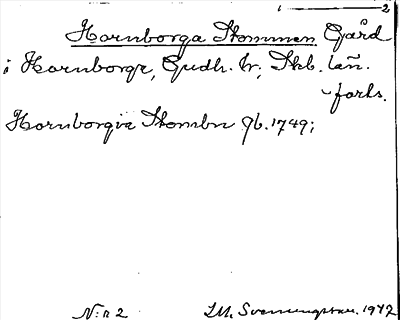 1 — 2
Hornborga Stommen Gård
i Hornborga, Gudh. hr, Skb. län.
forts.
Hornborgia Stombn Jb. 1749;
N:r 2 I.M. Svenungsson. 1972